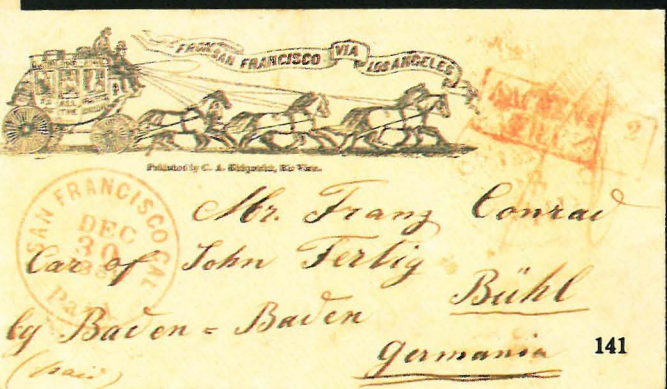 FROM SAN FRANCISCO VIA LOS ANGELES
TO ALL
Published by C. A.
AACHEN
FRANCO
2
SAN FRANCISCO CAL
DEC
30
Paid
Mr. Franz Conrad
Car of John Fertig
Bühl
by Baden = Baden
Germania
(paid)
141